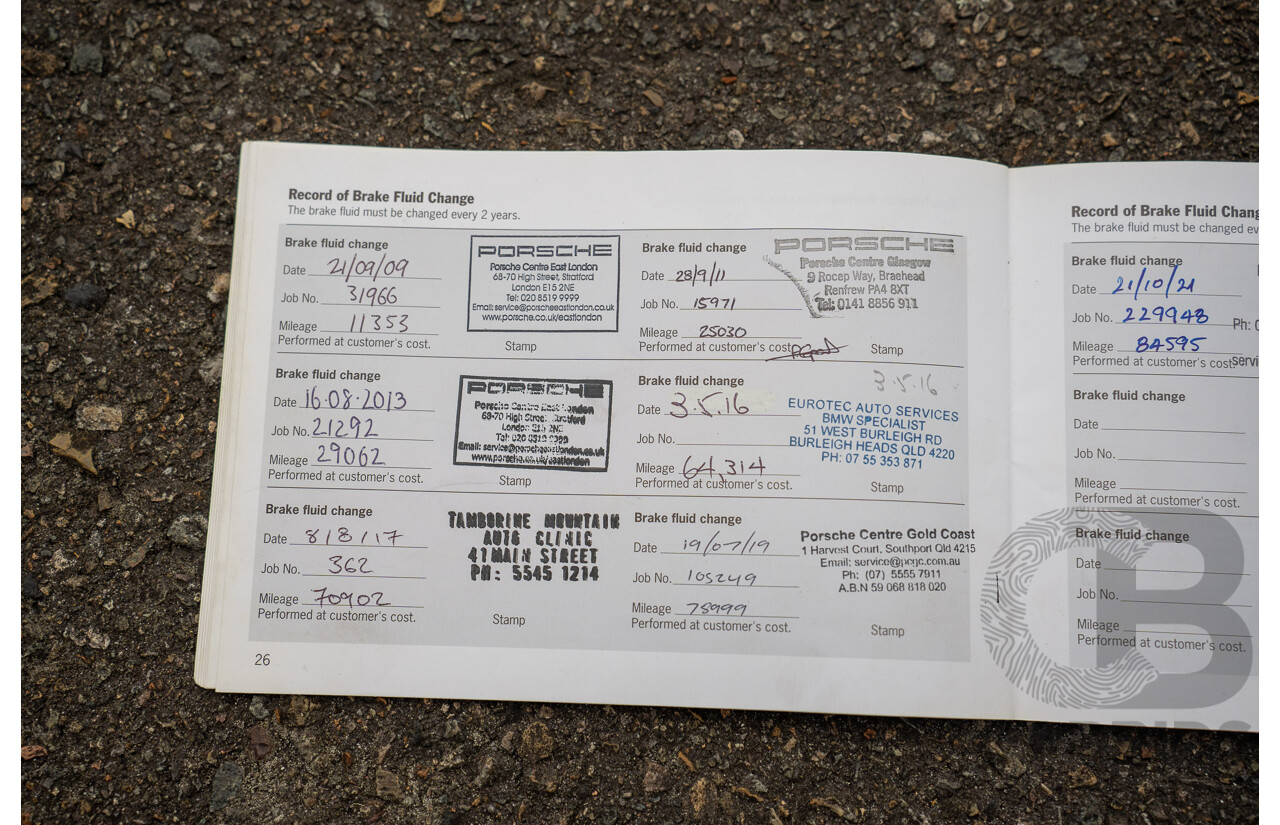 Record of Brake Fluid Change
The brake fluid must be changed every 2 years.
Brake fluid change
Date 21/09/09
Job No. 31966
Mileage 11353
Performed at customer's cost.
PORSCHE
Porsche Centre East London
68-70 High Street, Stratford
London E15 2NE
Tel: 020 8519 9999
Email: service@porscheeastlondon.co.uk
www.porsche.co.uk/eastlondon
Stamp
Brake fluid change
Date 28/9/11
Job No. 15971
Mileage 25030
Performed at customer's cost
PORSCHE
Porsche Centre Glasgow
9 Rocep Way, Braehead
Renfrew PA4 8XT
Tel: 0141 8856 911
Stamp
Brake fluid change
Date 16.08.2013
Job No. 21292
Mileage 29062
Performed at customer's cost.
PORSCHE
Porsche Centre East London
68-70 High Street, Stratford
London E15 2NE
Tel: 020 8519 9999
Email: service@porscheeastlondon.co.uk
www.porsche.co.uk/eastlondon
Stamp
Brake fluid change
Date 3.5.16
Job No.
Mileage 64,314
Performed at customer's cost.
3.5.16
EUROTEC AUTO SERVICES
BMW SPECIALIST
51 WEST BURLEIGH RD
BURLEIGH HEADS QLD 4220
PH: 07 55 353 871
Stamp
Brake fluid change
Date 8/8/17
Job No. 362
Mileage 70902
Performed at customer's cost.
TAMBORINE MOUNTAIN
AUTO CLINIC
41 MAIN STREET
PH: 5545 1214
Stamp
Brake fluid change
Date 19/07/19
Job No. 105249
Mileage 75999
Performed at customer's cost.
Porsche Centre Gold Coast
1 Harvest Court, Southport Qld 4215
Email: service@pcgc.com.au
Ph: (07) 5555 7911
A.B.N 59 068 818 020
Stamp
26
Record of Brake Fluid Chang
The brake fluid must be changed ev
Brake fluid change
Date 21/10/21
Job No. 229948
Mileage 84595
Performed at customer's cost
Ph: 0
Servi
Brake fluid change
Date
Job No.
Mileage
Performed at customer's cost.
Brake fluid change
Date
Job No.
Mileage
Performed at customer's cost.